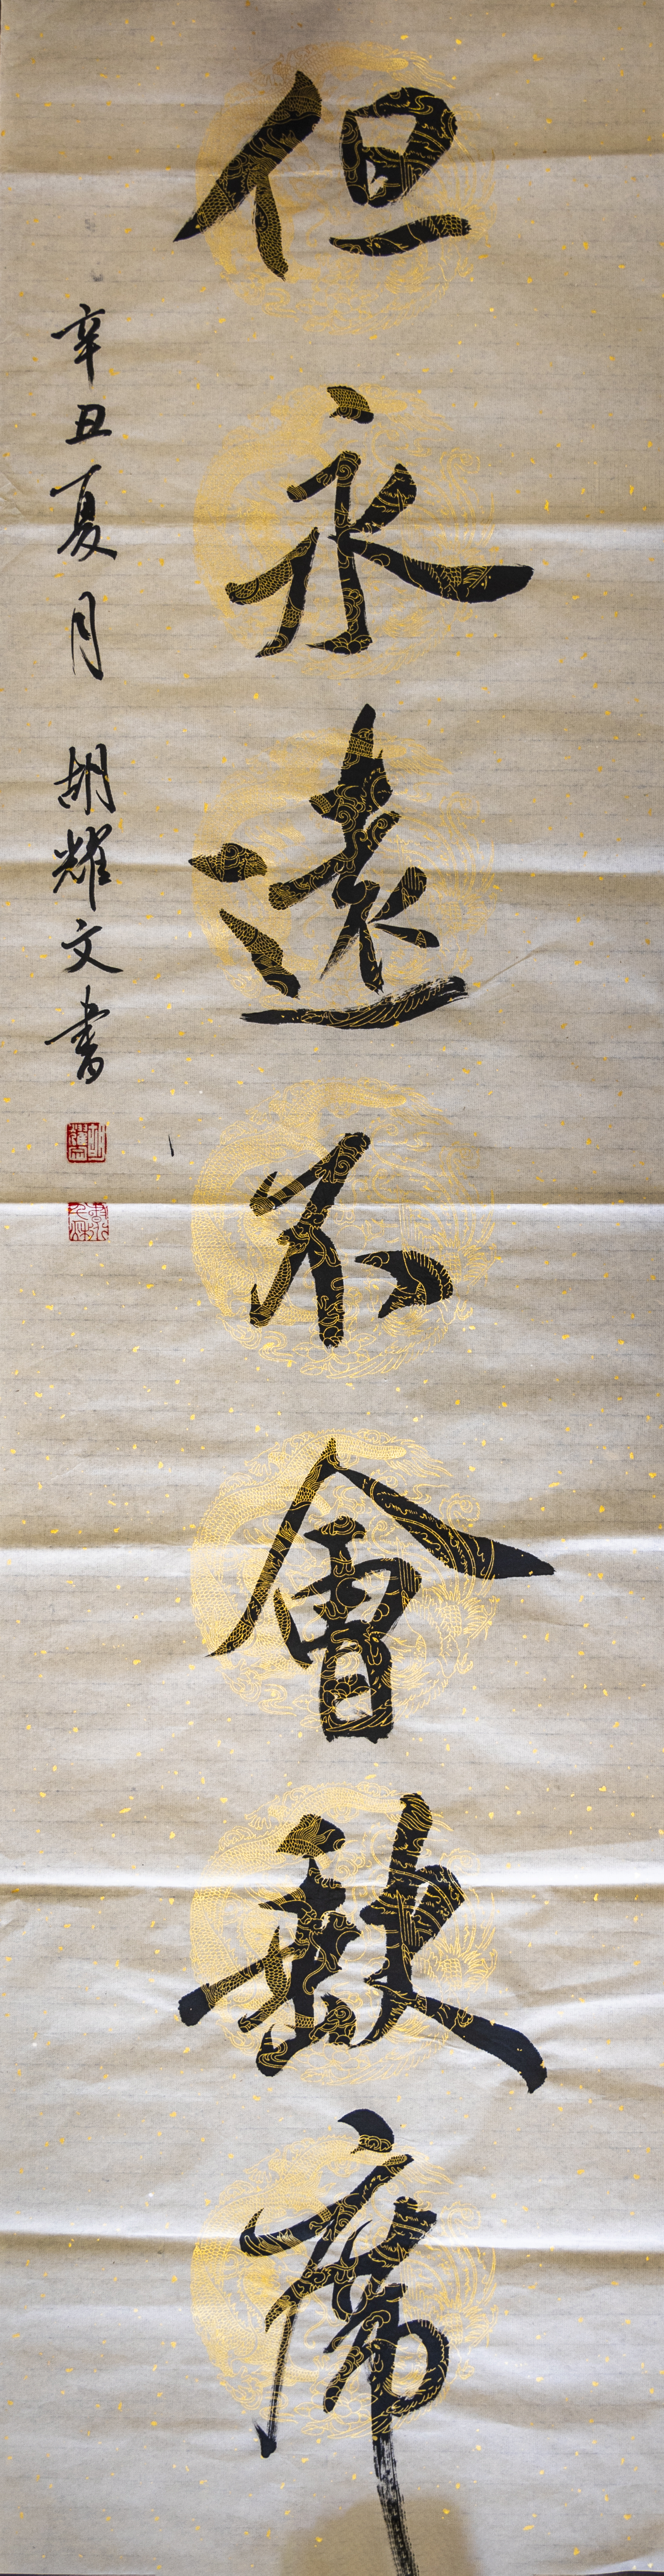 但永遠不會缺席
辛丑夏月 胡耀文書